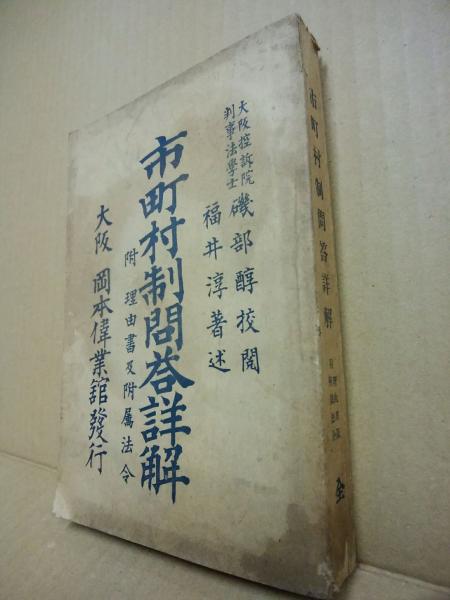 大阪控訴院
判事法學士
磯部醇挍閲
福井淳著述
市町村制問答詳解
附理由書及附属法令
大阪 岡本偉業舘發行
市町村制問答詳解
全